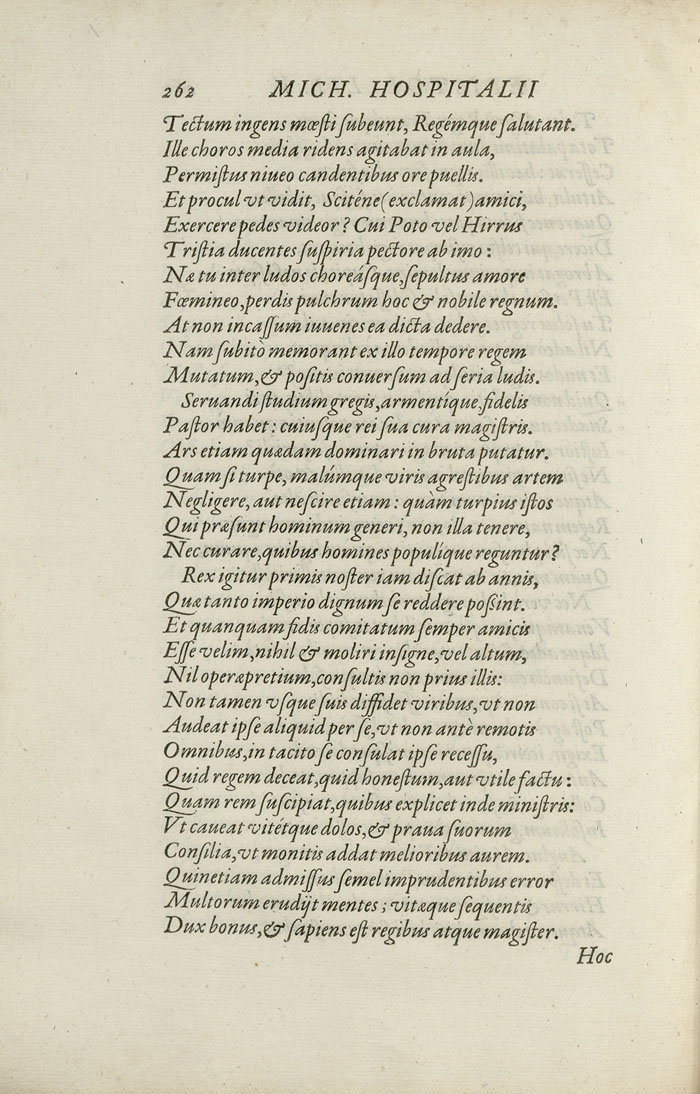 262 MICH. HOSPITALII
Tectum ingens mœsti subeunt, Regémque salutant.
Ille choros media ridens agitabat in aula,
Permistus niueo candentibus ore puellis.
Et procul vt vidit, Sciténe (exclamat) amici,
Exercere pedes videor? Cui Poto vel Hirrus
Tristia ducentes suspiria pectore ab imo:
Næ tu inter ludos choreásque, sepultus amore
Fœmineo, perdis pulchrum hoc & nobile regnum.
At non incassum iuuenes ea dicta dedere.
Nam subitò memorant ex illo tempore regem
Mutatum, & positis conuersum ad seria ludis.
Seruandi studium gregis, armentique, fidelis
Pastor habet: cuiusque rei sua cura magistris.
Ars etiam quædam dominari in bruta putatur.
Quam si turpe, malúmque viris agrestibus artem
Negligere, aut nescire etiam: quàm turpius istos
Qui præsunt hominum generi, non illa tenere,
Nec curare, quibus homines populíque reguntur?
Rex igitur primis noster iam discat ab annis,
Quæ tanto imperio dignum se reddere possint.
Et quanquam fidis comitatum semper amicis
Esse velim, nihil & moliri insigne, vel altum,
Nil operæpretium, consultis non prius illis:
Non tamen vsque suis diffidet viribus, vt non
Audeat ipse aliquid per se, vt non antè remotis
Omnibus, in tacito se consulat ipse recessu,
Quid regem deceat, quid honestum, aut vtile factu:
Quam rem suscipiat, quibus explicet inde ministris:
Vt caueat vitétque dolos, & praua suorum
Consilia, vt monitis addat melioribus aurem.
Quinetiam admissus semel imprudentibus error
Multorum erudijt mentes; vitæque sequentis
Dux bonus, & sapiens est regibus atque magister.
Hoc